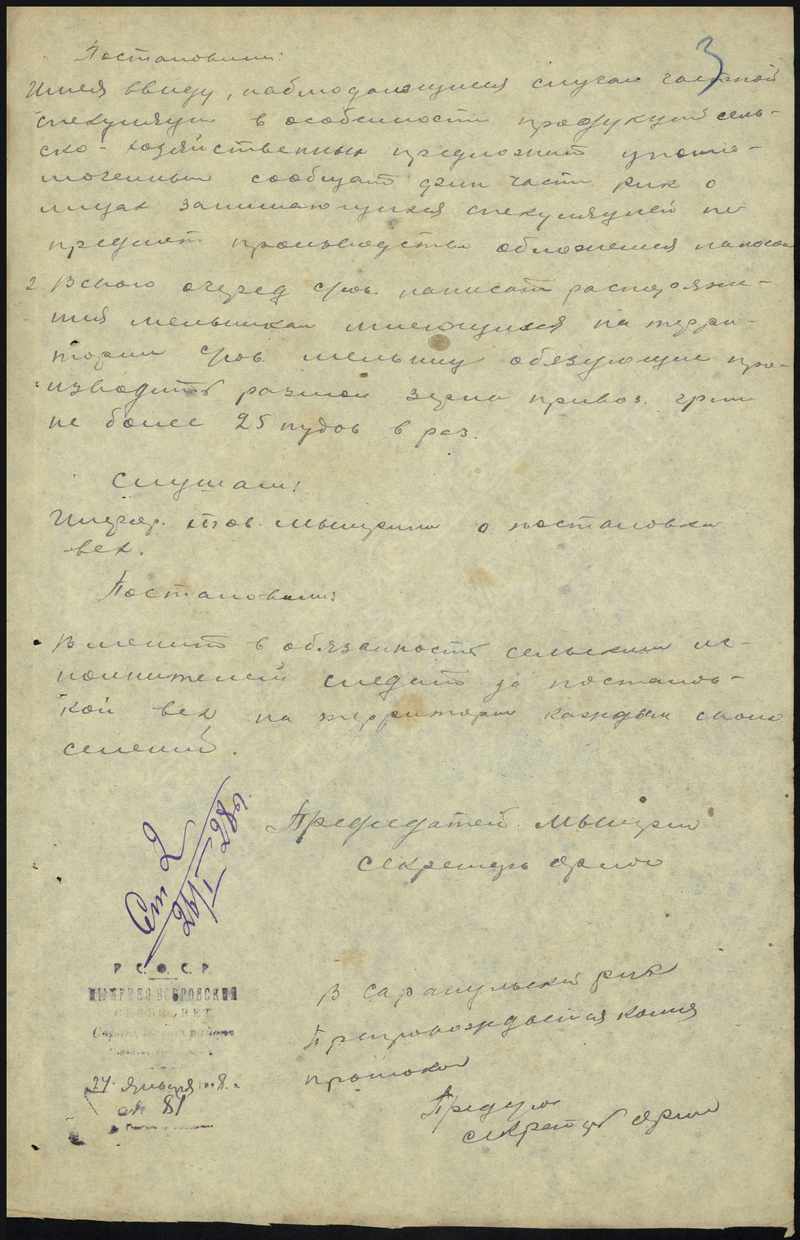 3
Постановили:
Имея ввиду, наблюдающиеся случаи частной
спекуляции в особенности продукций сель-
ско-хозяйственных предложит уполно-
моченным сообщат фин части рик о
лицах занимающихся спекуляцией на
предмет производства обложения налогом
2 Всвою очеред с/сов. написат распоряже-
ния мельникам имеющихся на терри-
тории с/сов мельниц обязующие про-
изводить размол зерна привоз. грам
не более 25 пудов в раз.
Слушали:
Информ. тов. Мышкина о постановки
вех.
Постановили:
Вменит в обязанность сельским ис-
полнителей следить за постанов-
кой вех на территории каждым своего
селений.
Председатей
Секретарь
Ст 2
26/I-28г.
Р. С. Ф. С. Р.
СЕЛЬСОВЕТ
24 января 1928 г.
№ 81
В Сарапульский рик
Препровождается копия
протокола
Предсов
секретарь